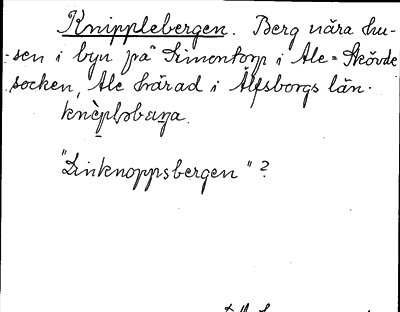 Knipplebergen. Berg nära hu-
sen i byn på Simontorp i Ale-Skövde
socken, Ale härad i Älfsborgs län.
"Linknoppsbergen"?